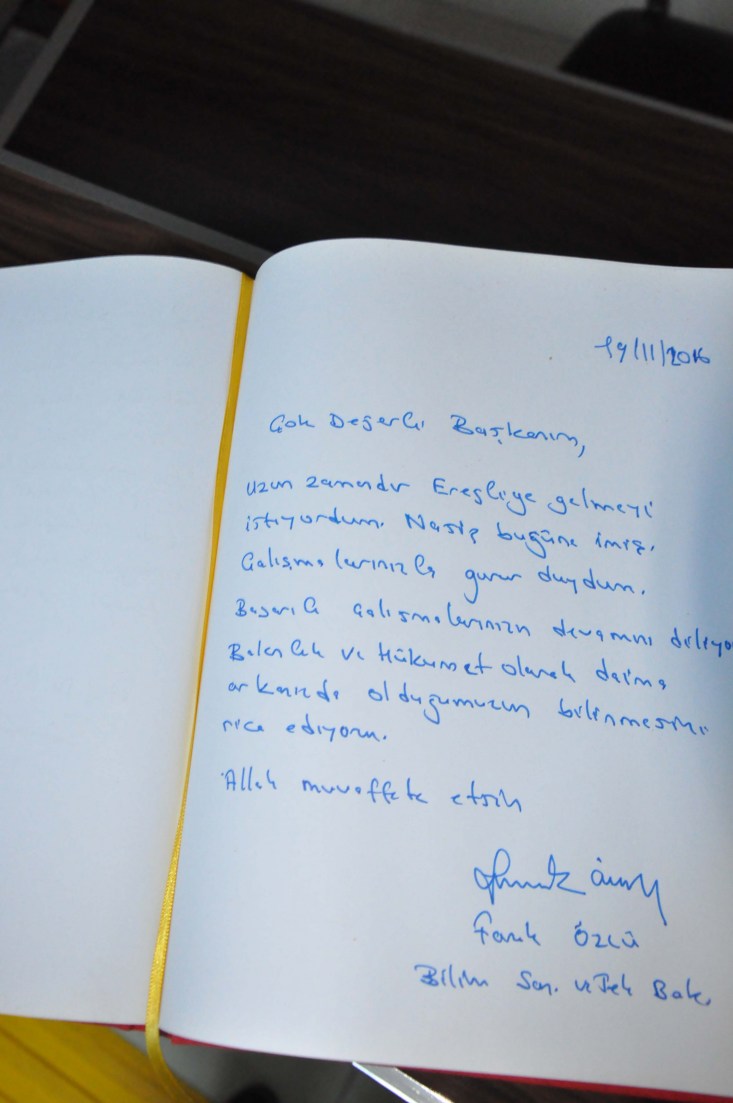 19/11/2016
Çok Değerli Başkanım,
uzun zamandır Ereğliye gelmeyi
istiyordum. Nasip bugüne imiş.
Çalışmalarınızla gurur duydum.
Başarılı çalışmalarınızın devamını diliyo
Bakanlık ve Hükumet olarak daima
arkanızda olduğumuzun bilinmesini
rica ediyorum.
Allah muvaffak etsin
Faruk Özlü
Bilim San. ve Tek Bak.